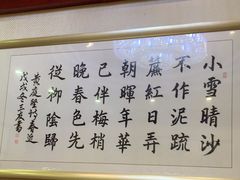 小雪晴沙
不作泥疏
簾紅日弄
朝暉年華
已伴梅梢
晚春色先
從御陰歸
黄庭堅詩春近
戊戌冬三友書